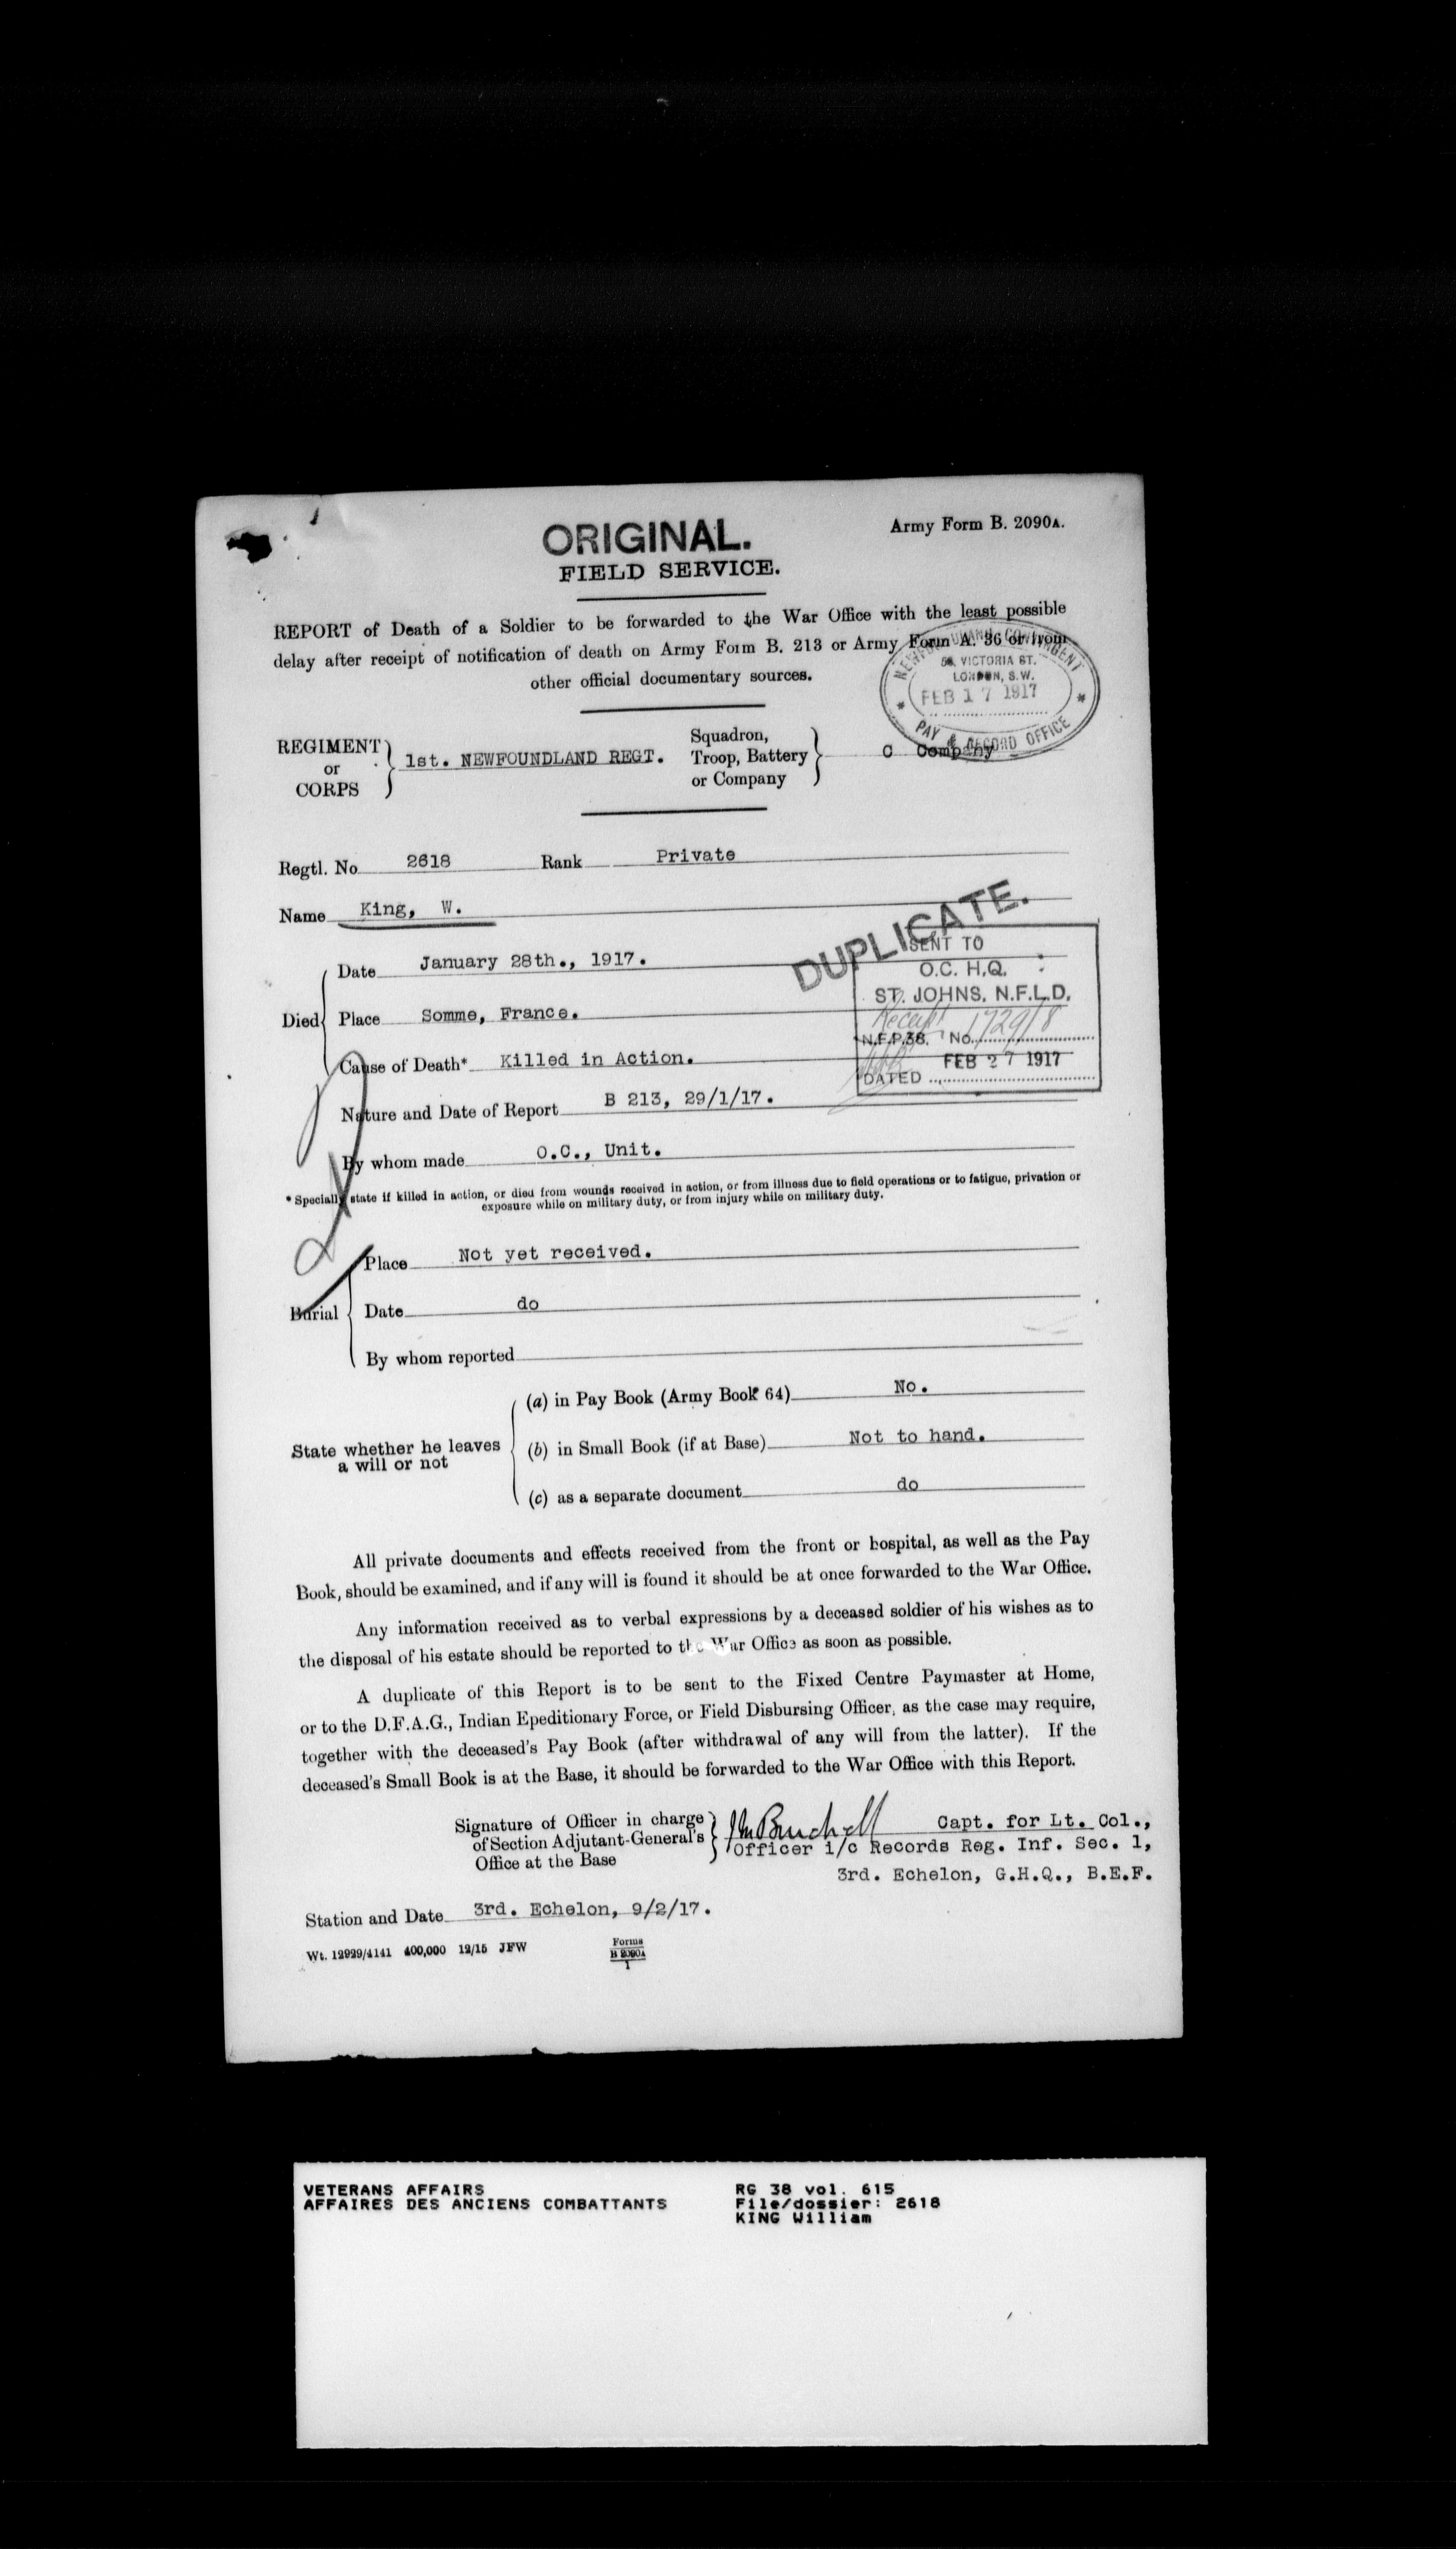 ORIGINAL.
Army Form B. 2090A.
FIELD SERVICE.
REPORT of Death of a Soldier to be forwarded to the War Office with the least possible
delay after receipt of notification of death on Army Form B. 213 or Army Form A. 36 or from
other official documentary sources.
NEWFOUNDLAND CONTINGENT
58, VICTORIA ST.
LONDON, S.W.
FEB 17 1917
PAY & RECORD OFFICE
REGIMENT or CORPS 1st. NEWFOUNDLAND REGT. Squadron, Troop, Battery or Company C Company
Regtl. No 2618 Rank Private
Name King, W.
DUPLICATE.
SENT TO
O.C. H.Q.
ST. JOHNS, N.F.L.D.
Receipt
N.F.P.38. No. 1729/8
DATED FEB 27 1917
Died
Date January 28th., 1917.
Place Somme, France.
Cause of Death* Killed in Action.
Nature and Date of Report B 213, 29/1/17.
By whom made O.C., Unit.
* Specially state if killed in action, or died from wounds received in action, or from illness due to field operations or to fatigue, privation or
exposure while on military duty, or from injury while on military duty.
Burial
Place Not yet received.
Date do
By whom reported
State whether he leaves
a will or not
(a) in Pay Book (Army Book 64) No.
(b) in Small Book (if at Base) Not to hand.
(c) as a separate document do
All private documents and effects received from the front or hospital, as well as the Pay
Book, should be examined, and if any will is found it should be at once forwarded to the War Office.
Any information received as to verbal expressions by a deceased soldier of his wishes as to
the disposal of his estate should be reported to the War Office as soon as possible.
A duplicate of this Report is to be sent to the Fixed Centre Paymaster at Home,
or to the D.F.A.G., Indian Epeditionary Force, or Field Disbursing Officer, as the case may require,
together with the deceased's Pay Book (after withdrawal of any will from the latter). If the
deceased's Small Book is at the Base, it should be forwarded to the War Office with this Report.
Signature of Officer in charge
of Section Adjutant-General's
Office at the Base
Capt. for Lt. Col.,
Officer i/c Records Reg. Inf. Sec. 1,
3rd. Echelon, G.H.Q., B.E.F.
Station and Date 3rd. Echelon, 9/2/17.
Wt. 12929/4141 400,000 12/15 JFW
Forms
B 2090A
1
VETERANS AFFAIRS
AFFAIRES DES ANCIENS COMBATTANTS
RG 38 vol. 615
File/dossier: 2618
KING William